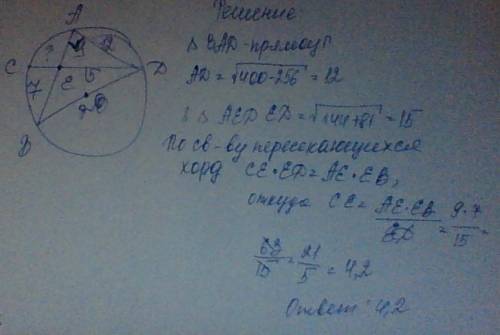 Решение
A
? 9 12
C E 15 D
7
20
B
Δ BAD - прямоуг
AD = √400-256 = 12
Δ AED ED = √144+81 = 15
По св-ву пересекающихся
хорд CE·ED = AE·EB,
откуда CE = AE·EB/ED = 9·7/15 =
63/15 = 21/5 = 4,2
Ответ: 4,2